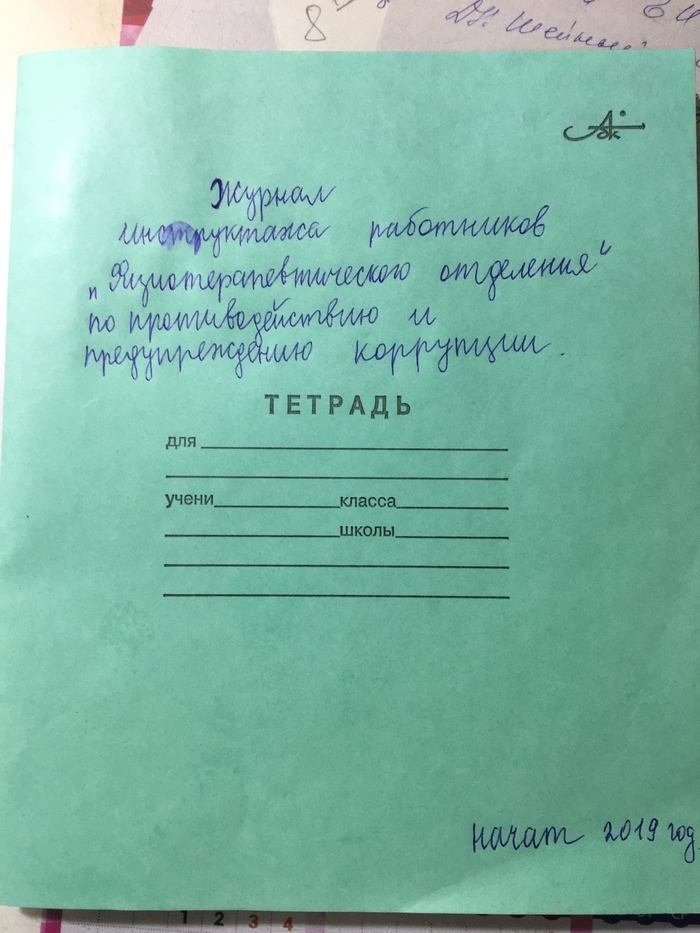 8
Журнал
инструктажа работников
„Физиотерапевтического отделения"
по противодействию и
предупреждению коррупции.
ТЕТРАДЬ
для
учени класса
школы
начат 2019 год
1 2 3 4